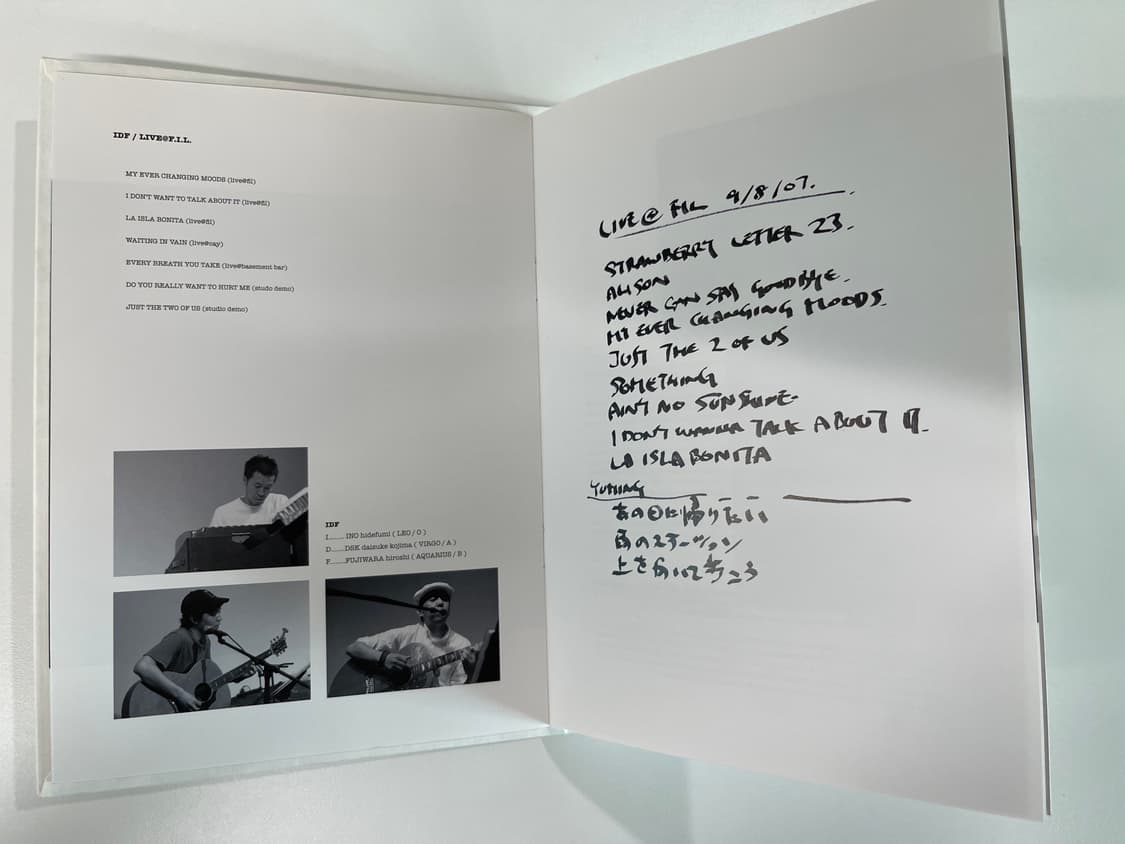 IDF / LIVE@F.I.L.
MY EVER CHANGING MOODS (live@fil)
I DON'T WANT TO TALK ABOUT IT (live@fil)
LA ISLA BONITA (live@fil)
WAITING IN VAIN (live@cay)
EVERY BREATH YOU TAKE (live@basement bar)
DO YOU REALLY WANT TO HURT ME (studo demo)
JUST THE TWO OF US (studio demo)
IDF
I........INO hidefumi ( LEO / O )
D........DSK daizuke kojima ( VIRGO / A )
F........FUJIWARA hiroshi ( AQUARIUS / B )
LIVE @ FIL 9/8/07.
STRAWBERRY LETTER 23.
ALISON
NEVER CAN SAY GOODBYE.
MY EVER CHANGING MOODS.
JUST THE 2 OF US
SOMETHING
AIN'T NO SUNSHINE
I DON'T WANNA TALK ABOUT IT.
LA ISLA BONITA
YUMING
あの日に帰りたい
雨のステーション
上を向いて歩こう